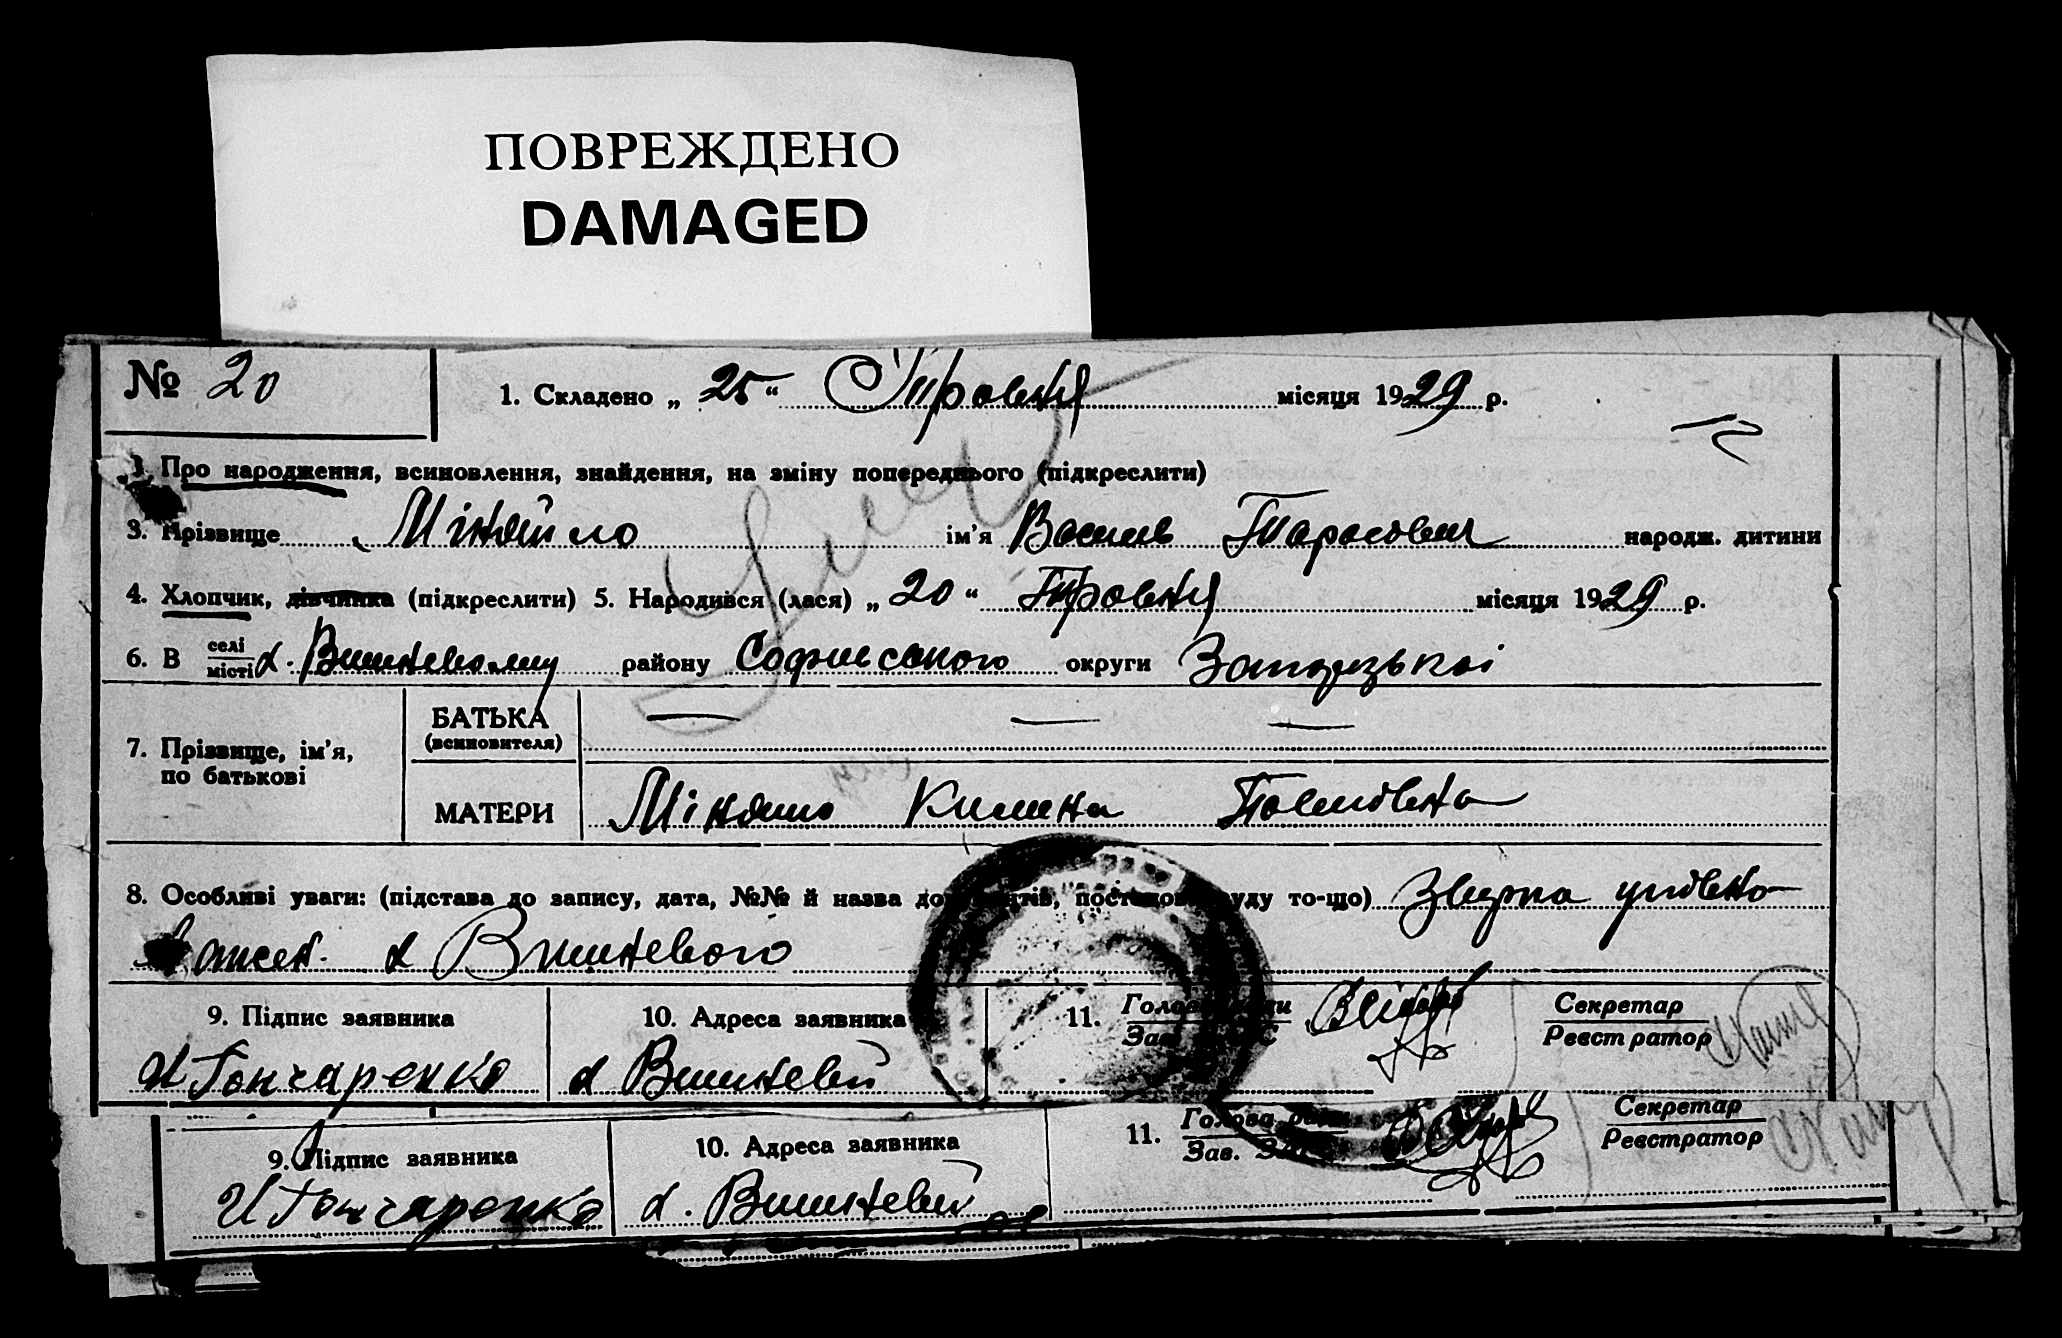 ПОВРЕЖДЕНО
DAMAGED
№ 20
1. Складено „ 25 “ Травня місяця 1929 р.
Про народження, всиновлення, знайдення, на зміну попереднього (підкреслити)
3. Прізвище Міняйло ім'я Василь Тарасович народж. дитини
4. Хлопчик, дівчинка (підкреслити) 5. Народився (лася) „ 20 “ Травня місяця 1929 р.
6. В селі місті х. Вишневому району Софиевского округи Запорізькоі
7. Прізвище, ім'я, по батькові
БАТЬКА (всиновителя) — — —
МАТЕРИ Міняйло Килина
8. Особливі уваги: (підстава до запису, дата, №№ й назва документів, постанови суду то-що)
х Вишневого
9. Підпис заявника
10. Адреса заявника
11. Голова ради
Зав. ЗАГС
Секретар
Реєстратор
И Гончаренко
х Вишневий
9. Підпис заявника
10. Адреса заявника
11. Голова ради
Зав.
Секретар
Реєстратор
И Гончаренко
х. Вишневий